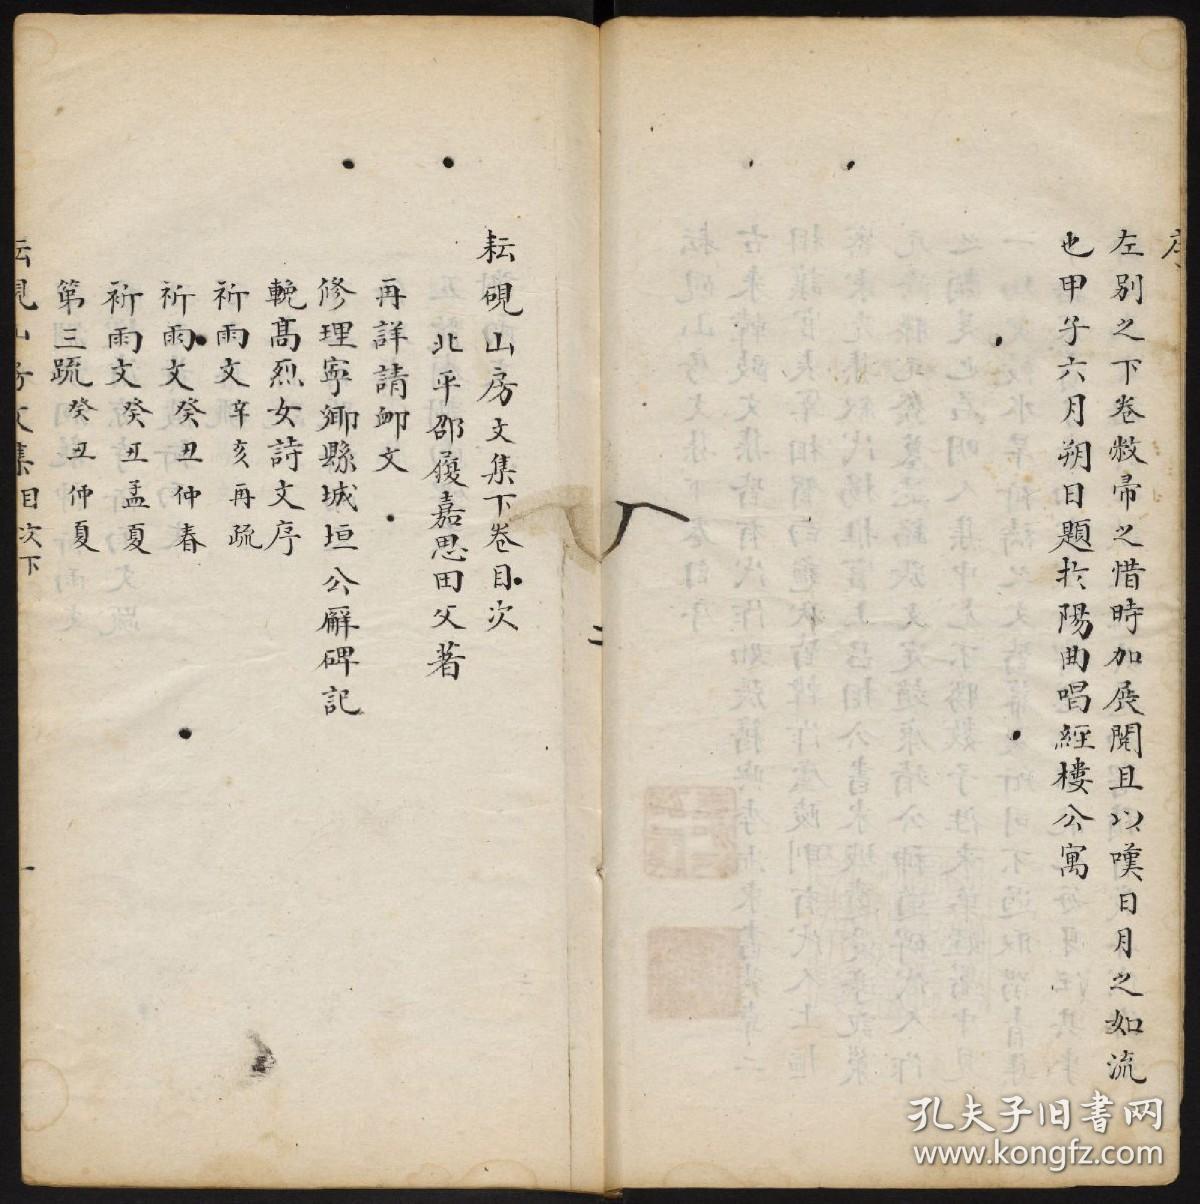 序
左別之下卷敝帚之惜時加展閱且以嘆日月之如流
也甲子六月朔日題於陽曲唱經樓公寓
耘硯山房文集下卷目次
北平邵履嘉思田父著
再詳請邮文
修理寧鄉縣城垣公廨碑記
輓高烈女詩文序
祈雨文辛亥再疏
祈雨文癸丑仲春
祈雨文癸丑孟夏
第三疏癸丑仲夏
耘硯山房文集目次下
一
孔夫子旧书网
www.kongfz.com